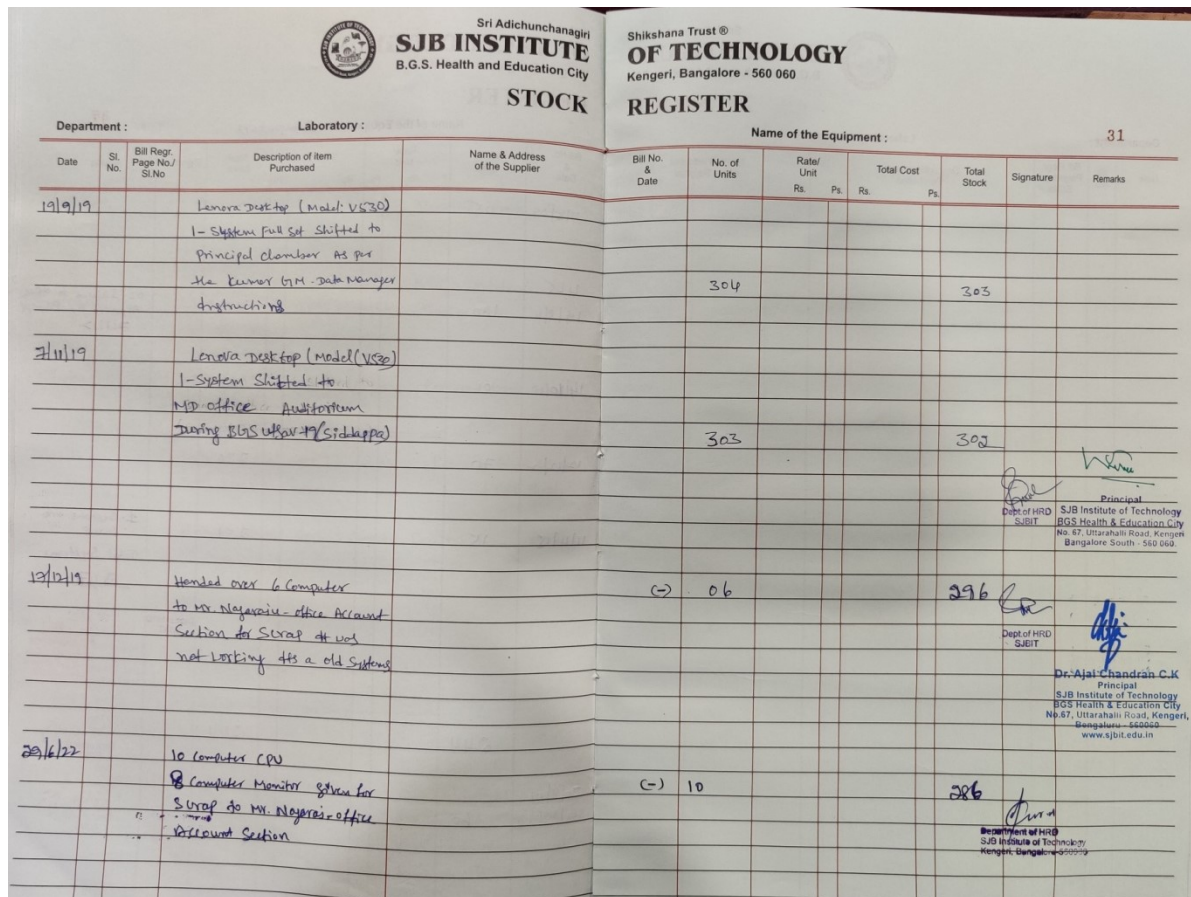 Sri Adichunchanagiri Shikshana Trust ®
SJB INSTITUTE OF TECHNOLOGY
B.G.S. Health and Education City Kengeri, Bangalore - 560 060
STOCK REGISTER
Department : Laboratory : Name of the Equipment : 31
Date Sl. No. Bill Regr. Page No./ Sl.No Description of item Purchased Name & Address of the Supplier Bill No. & Date No. of Units Rate/ Unit Rs. Ps. Total Cost Rs. Ps. Total Stock Signature Remarks
19/9/19 Lenova Desktop (Model: V530)
1- System Full Set Shifted to
Principal chamber As per
the Kumar GM - Data Manager 304 303
Instructions
7/11/19 Lenova Desktop (Model (V530)
1-System Shifted to
MD office Auditorium
During BGS utsav-19 (Siddappa) 303 302
Principal
Dept.of HRD SJB Institute of Technology
SJBIT BGS Health & Education City
No. 67, Uttarahalli Road, Kengeri
Bangalore South - 560 060.
Handed over 6 Computer (-) 06 296
to Mr. Nagaraju - office Account
Section for Scrap
not working a old Systems
Dept.of HRD
SJBIT
Dr. Ajai Chandran C.K
Principal
SJB Institute of Technology
BGS Health & Education City
No.67, Uttarahalli Road, Kengeri,
Bengaluru - 560060
www.sjbit.edu.in
29/6/22 10 Computer CPU
8 Computer Monitor given for (-) 10 286
Scrap to Mr. Nagaraj - office
Account Section
Department of HRD
SJB Institute of Technology
Kengeri, Bangalore-560060